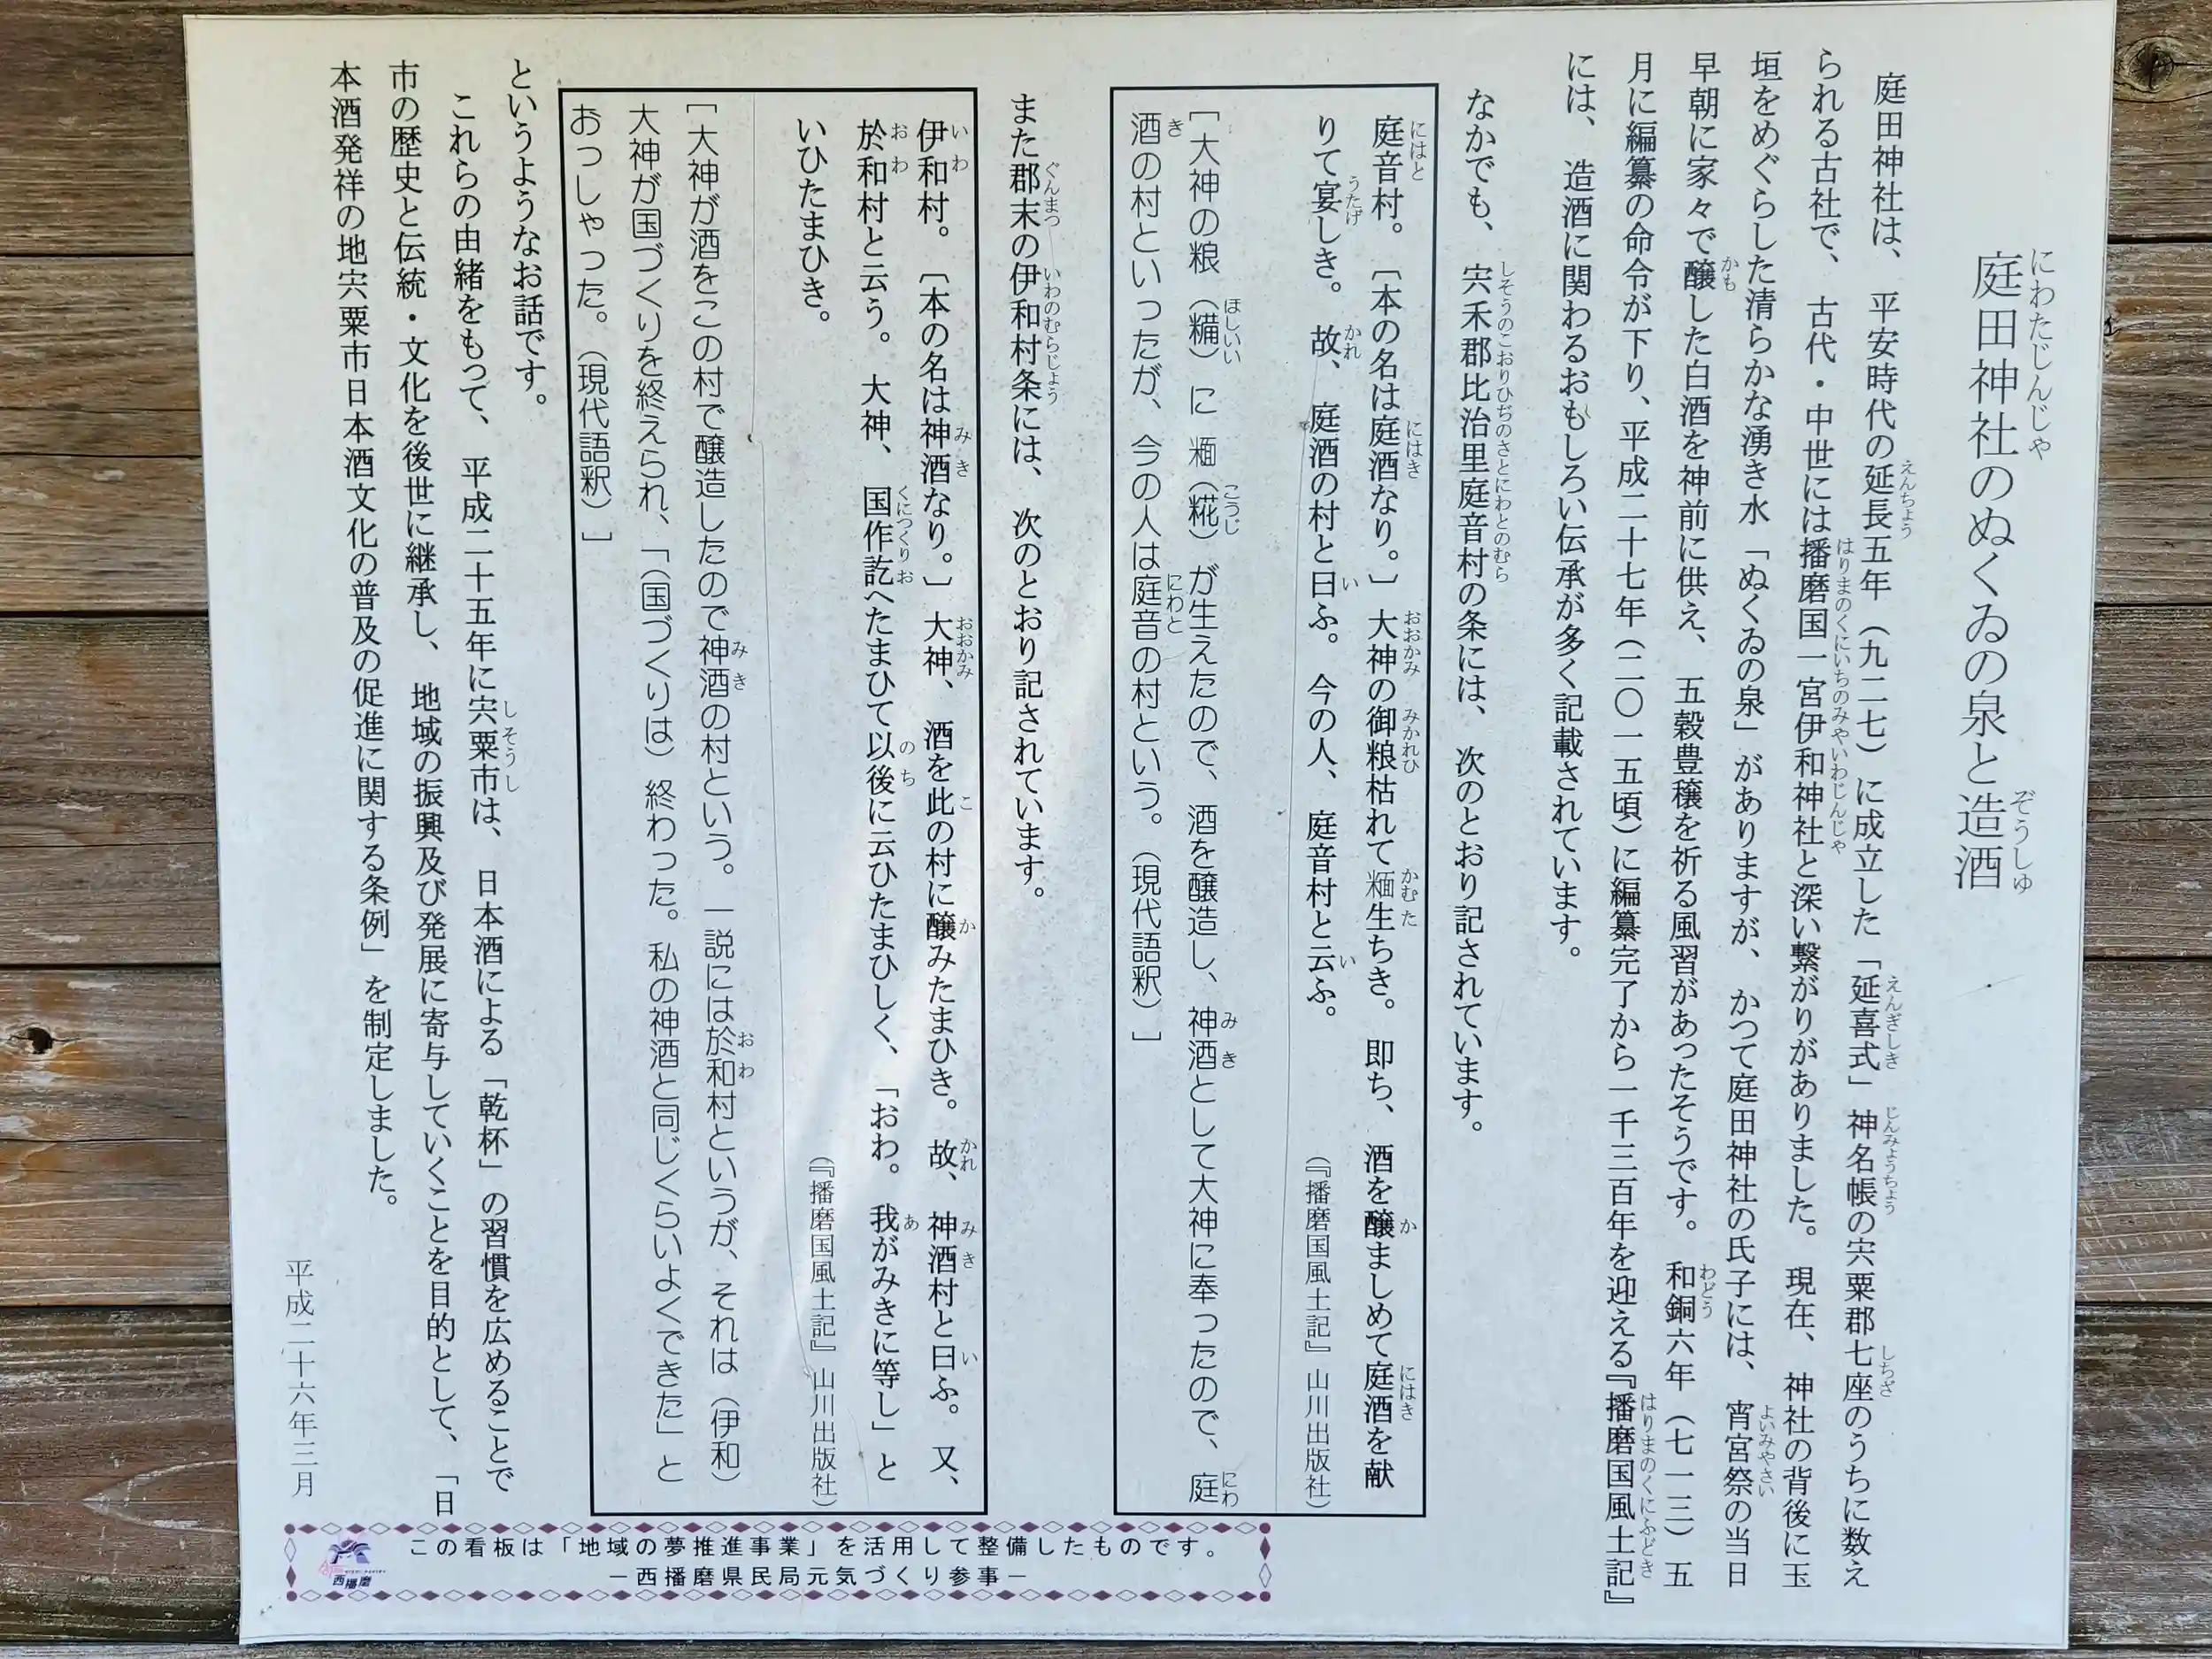 庭田神社のぬくゐの泉と造酒
にわたじんじゃ
ぞうしゅ
庭田神社は、平安時代の延長五年（九二七）に成立した「延喜式」神名帳の宍粟郡七座のうちに数え
えんちょう
えんぎしき
じんみょうちょう
しちざ
られる古社で、古代・中世には播磨国一宮伊和神社と深い繋がりがありました。現在、神社の背後に玉
はりまのくにいちのみやいわじんじゃ
垣をめぐらした清らかな湧き水「ぬくゐの泉」がありますが、かつて庭田神社の氏子には、宵宮祭の当日
よいみやさい
早朝に家々で醸した白酒を神前に供え、五穀豊穣を祈る風習があったそうです。和銅六年（七一三）五
かも
わどう
月に編纂の命令が下り、平成二十七年（二〇一五頃）に編纂完了から一千三百年を迎える『播磨国風土記』
はりまのくにふどき
には、造酒に関わるおもしろい伝承が多く記載されています。
なかでも、宍禾郡比治里庭音村の条には、次のとおり記されています。
しそうのこおりひぢのさとにわとのむら
庭音村。〔本の名は庭酒なり。〕大神の御粮枯れて𥹢生ちき。即ち、酒を醸ましめて庭酒を献
にはと
にはき
おおかみ
みかれひ
かむた
か
にはき
りて宴しき。故、庭酒の村と曰ふ。今の人、庭音村と云ふ。
うたげ
かれ
い
い
（『播磨国風土記』山川出版社）
［大神の粮（糒）に𥹢（糀）が生えたので、酒を醸造し、神酒として大神に奉ったので、庭
ほしいい
こうじ
みき
にわ
酒の村といったが、今の人は庭音の村という。（現代語釈）］
き
にわと
また郡末の伊和村条には、次のとおり記されています。
ぐんまつ
いわのむらじょう
伊和村。〔本の名は神酒なり。〕大神、酒を此の村に醸みたまひき。故、神酒村と曰ふ。又、
いわ
みき
おおかみ
こ
か
かれ
みき
い
於和村と云う。大神、国作訖へたまひて以後に云ひたまひしく、「おわ。我がみきに等し」と
おわ
くにつくりお
のち
あ
いひたまひき。
（『播磨国風土記』山川出版社）
［大神が酒をこの村で醸造したので神酒の村という。一説には於和村というが、それは（伊和）
みき
おわ
大神が国づくりを終えられ、「（国づくりは）終わった。私の神酒と同じくらいよくできた」と
おっしゃった。（現代語釈）］
というようなお話です。
これらの由緒をもって、平成二十五年に宍粟市は、日本酒による「乾杯」の習慣を広めることで
しそうし
市の歴史と伝統・文化を後世に継承し、地域の振興及び発展に寄与していくことを目的として、「日
本酒発祥の地宍粟市日本酒文化の普及の促進に関する条例」を制定しました。
平成二十六年三月
この看板は「地域の夢推進事業」を活用して整備したものです。
－西播磨県民局元気づくり参事－
西播磨